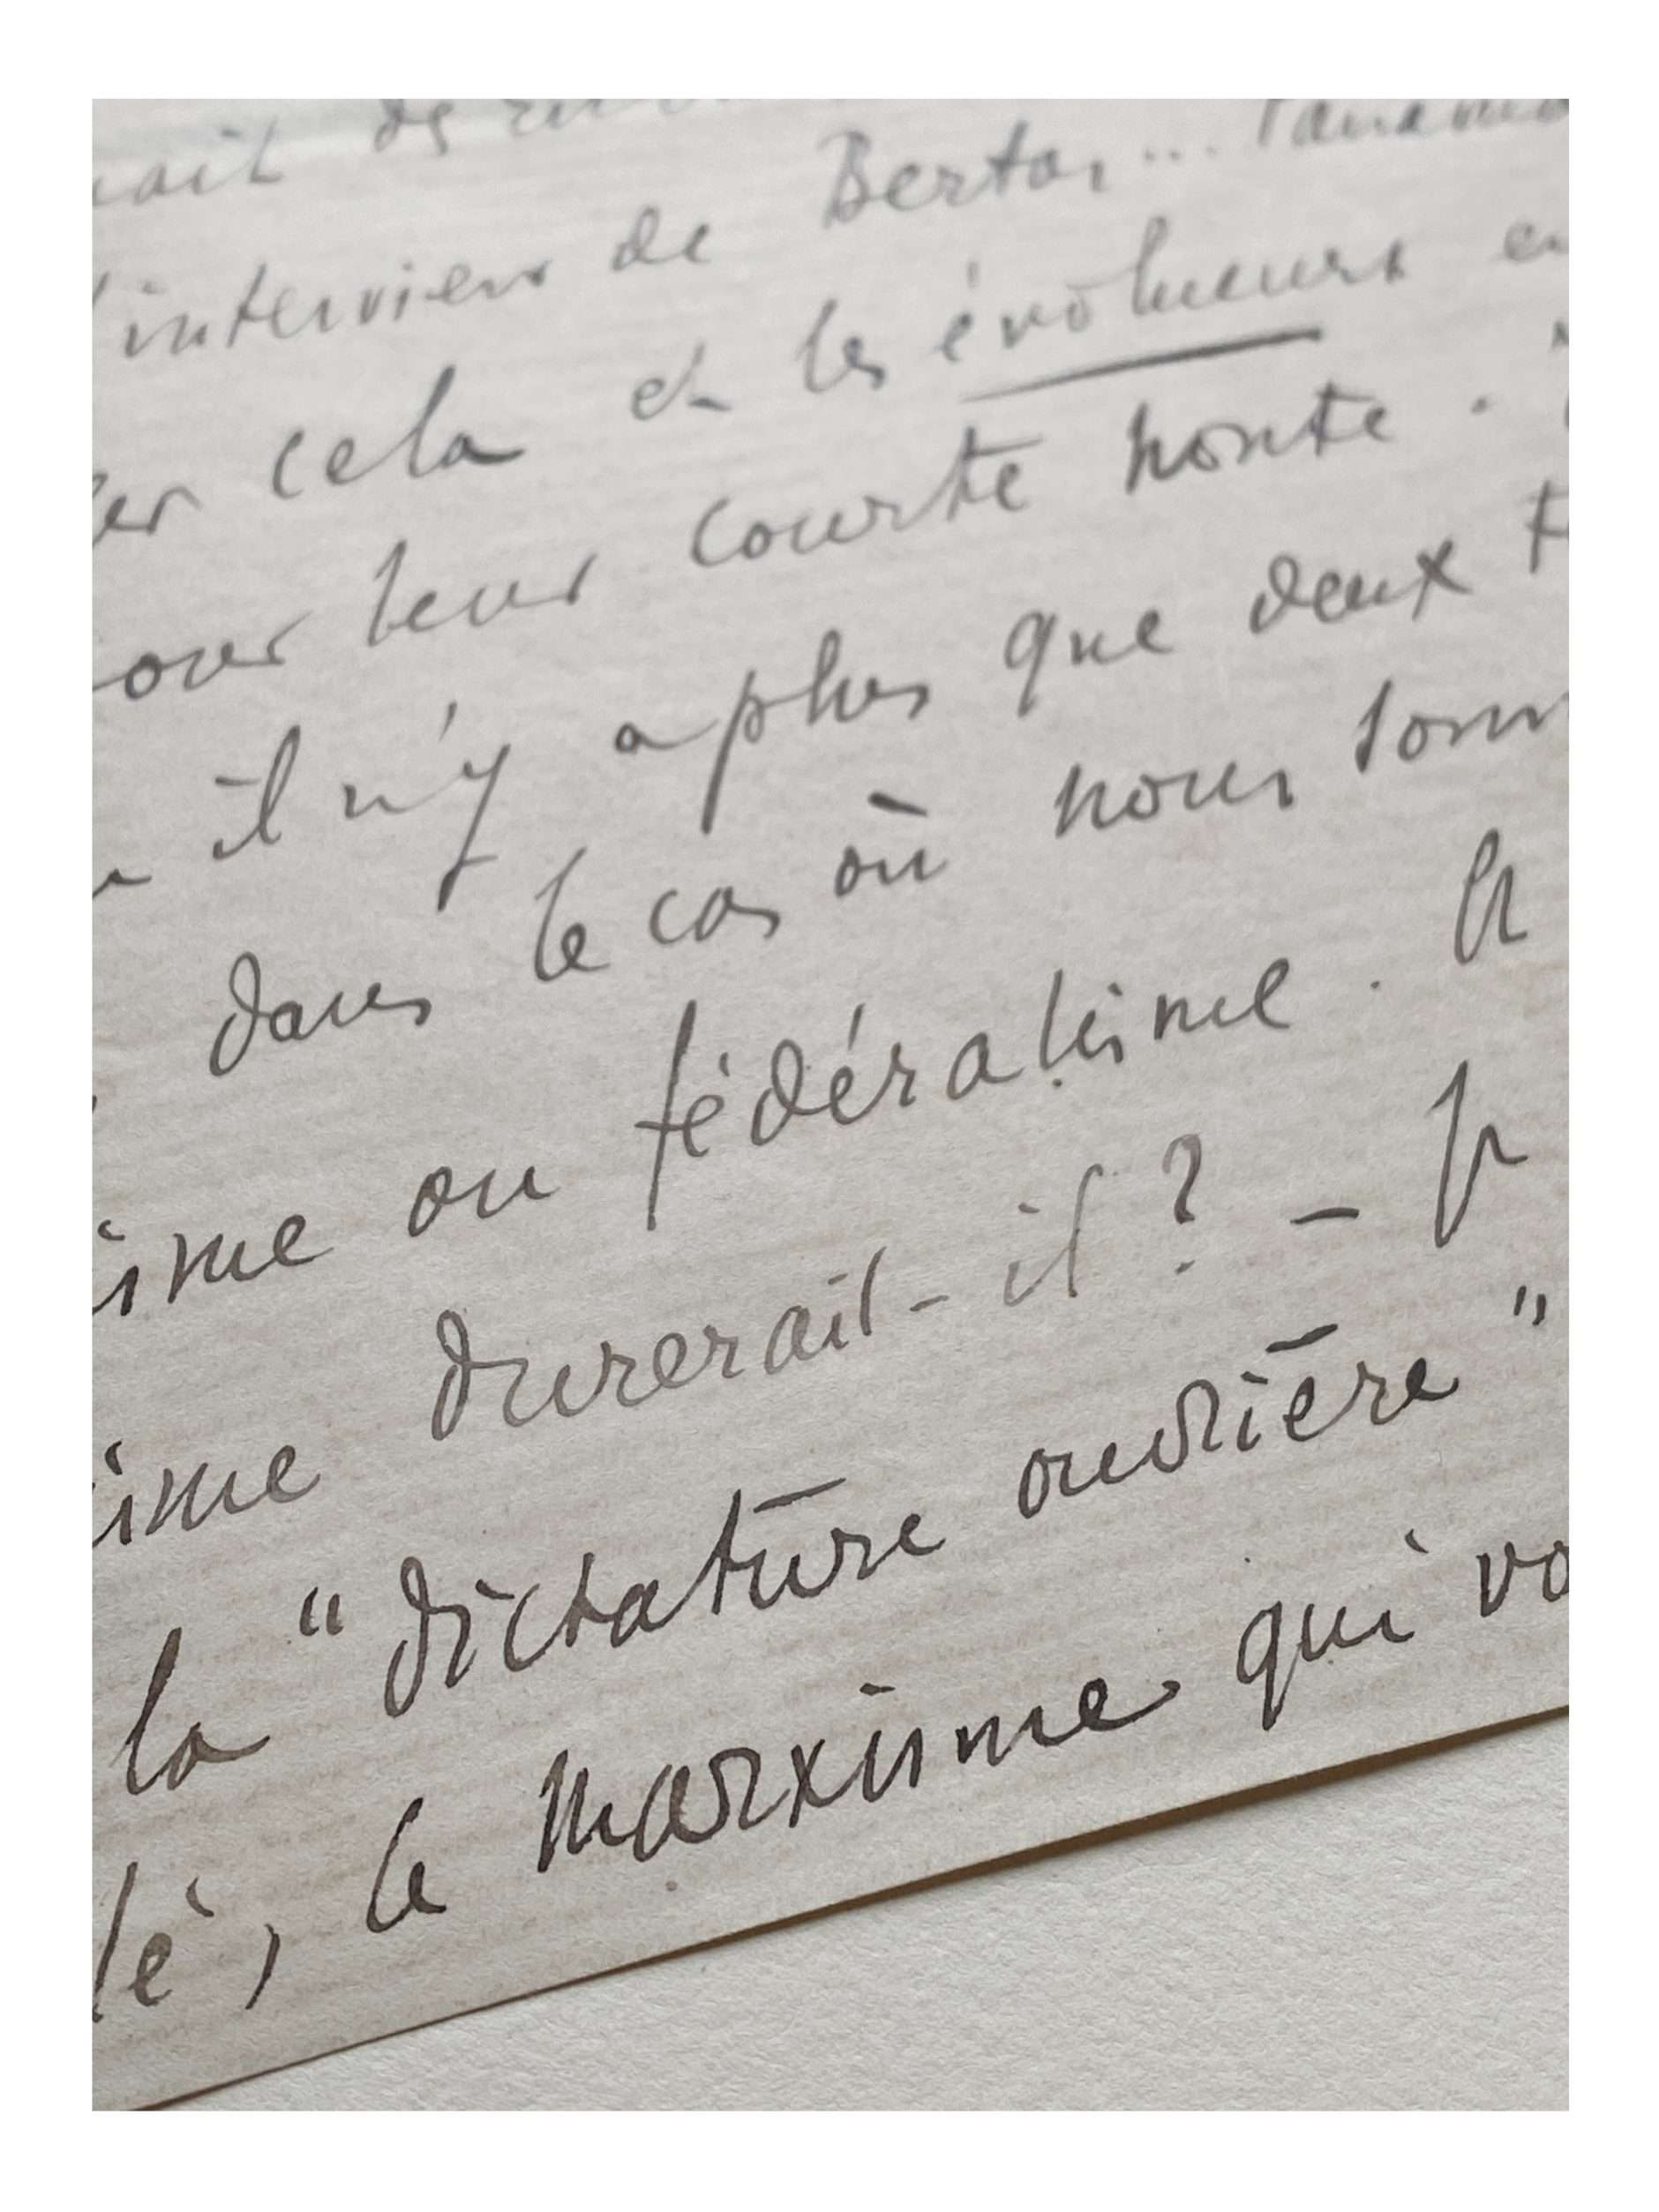 ait de
l'interview de Bertoi...
er cela et les évolueurs en
leur courte honte.
il n'y a plus que deux
dans le cas où nous somm
isme ou fédéralisme. Et
isme durerait-il? - Je
la "dictature ouvrière"
lé, le marxisme qui vo